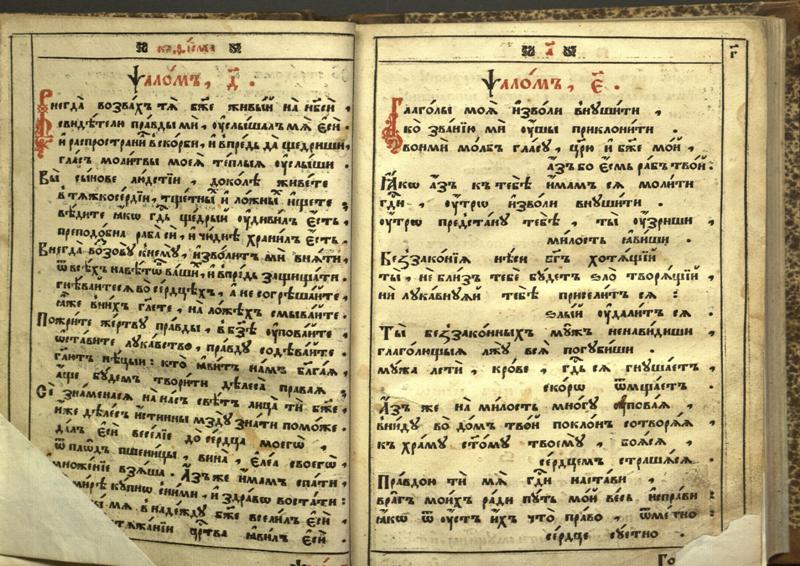 Ѱало́мъ, д҃.
Внегда̀ возва́хъ тѧ̀ бж҃е живы́й на нб҃сѝ,
свидѣ́телю пра́вды мѝ, ᲂу҆слы́шалъ мѧ̀ є҆сѝ.
и҆ распространѝ в̾ско́рби, и҆ впре́дь да̀ щедри́ши,
гла́съ моли́твы моеѧ̀ те́плыѧ ᲂу҆слы́ши.
Вы̀ сы́нове людстїи, доко́лѣ живе́те
в̾тѧ́жкосе́рдїи, тще́тны и҆ ло́жны и҆́щете;
вѣ́дите ꙗ҆́кѡ гдⷭ҇ь ще́дрый ᲂу҆диви́лъ є҆́сть,
преподо́бна раба̀ сѝ, и҆ чи́днѣ храни́лъ є҆́сть.
Внегда̀ во́зову к̾немꙋ̀, и҆зво́литъ мѝ внѧ́ти,
ѿ всѣ́хъ навѣ́тѡ ва́ши, и҆ впре́дь защища́ти.
гнѣ́вайтесѧ во се́рдцехъ, а҆ не согрѣша́йте,
ꙗ҆̀же в̾ни́хъ гл҃ете, на ло́жехъ смыва́йте.
Пожри́те же́ртву пра́вды, в бз҃ѣ ᲂу҆пова́йте,
ѡ҆ста́вите лука́вство, пра́вду содѣва́йте.
гл҃ютъ нѣ́цыи: кто̀ ꙗ҆ви́тъ на́мъ бл҃га́ѧ,
а҆́ще бу́демъ твори́ти дѣлеса̀ права́ѧ;
Сѐ зна́менасѧ на на́съ свѣ́тъ лица̀ тѝ бж҃е,
и҆́же дѣ́лесъ и҆́стинны мзду̀ зна́ти помо́же.
да́лъ є҆сѝ весе́лїе до се́рдца моегѡ̀,
ѿ плѡ́дъ пшени́цы, вина̀, є҆ле́а своегѡ̀
множе́нїе взѧ́ша. А҆́зъ же и҆́мамъ спа́ти,
ми́рѣ ку́пнѡ с ни́ми, и҆ здра́вѡ воста́ти:
мѧ̀ в̾наде́жду бж҃е всели́лъ є҆сѝ,
стѧжа́нїи црⷭ҇тва ꙗ҆ви́лъ є҆сѝ.
г҃
Ѱало́мъ, є҃.
Глаго́лы моѧ̀ и҆зво́ли внуши́ти,
ко̀ зва́нїю мѝ ᲂу҆́шы приклони́ти.
Во́нми мо́лбъ гла́су, цр҃ю и҆ бж҃е мо́й,
а҆́зъ бо є҆́смь ра́бъ тво́й:
Ꙗ҆́кѡ а҆́зъ к̾ тебѣ̀ и҆́мамъ сѧ моли́ти
гдⷭ҇и, ᲂу҆́трѡ и҆зво́ли внуши́ти.
ᲂу҆́трѡ предста́ну тебѣ̀, ты̀ ᲂу҆́зриши,
ми́лость ꙗ҆ви́ши.
Беззако́нїѧ нѣ́си бг҃ъ хотѧ́щїй
ты̀, не бли́зъ тебѐ бу́детъ ѕло̀ творѧ́щїй,
нѝ лука́внуѧй тебѣ̀ присели́т сѧ:
ѕлы́й ᲂу҆дали́т сѧ.
Ты̀ беззако́нныхъ му́жъ ненави́диши,
глаго́лющыѧ лжу̀ всѧ̀ погуби́ши.
му́жа ле́ти, кро́ве, гдⷭ҇ь сѧ гнуша́етъ,
ско́рѡ ѿмща́етъ.
А҆́зъ же на ми́лость мно́гу ᲂу҆пова́ѧ,
вни́ду во до́мъ тво́й покло́нъ сотворѧ́ѧ
къ хра́му ст҃о́му твоему̀, боѧ́сѧ,
се́рдцемъ страша́сѧ.
Пра́вдою тѝ мѧ̀ гдⷭ҇и наста́ви,
вра́гъ мои́хъ ра́ди пу́ть мо́й ве́сь и҆спра́ви:
ꙗ҆́кѡ ѿ ᲂу҆́стъ и҆́хъ что̀ пра́во, ѿме́тно:
се́рдце су́етно.